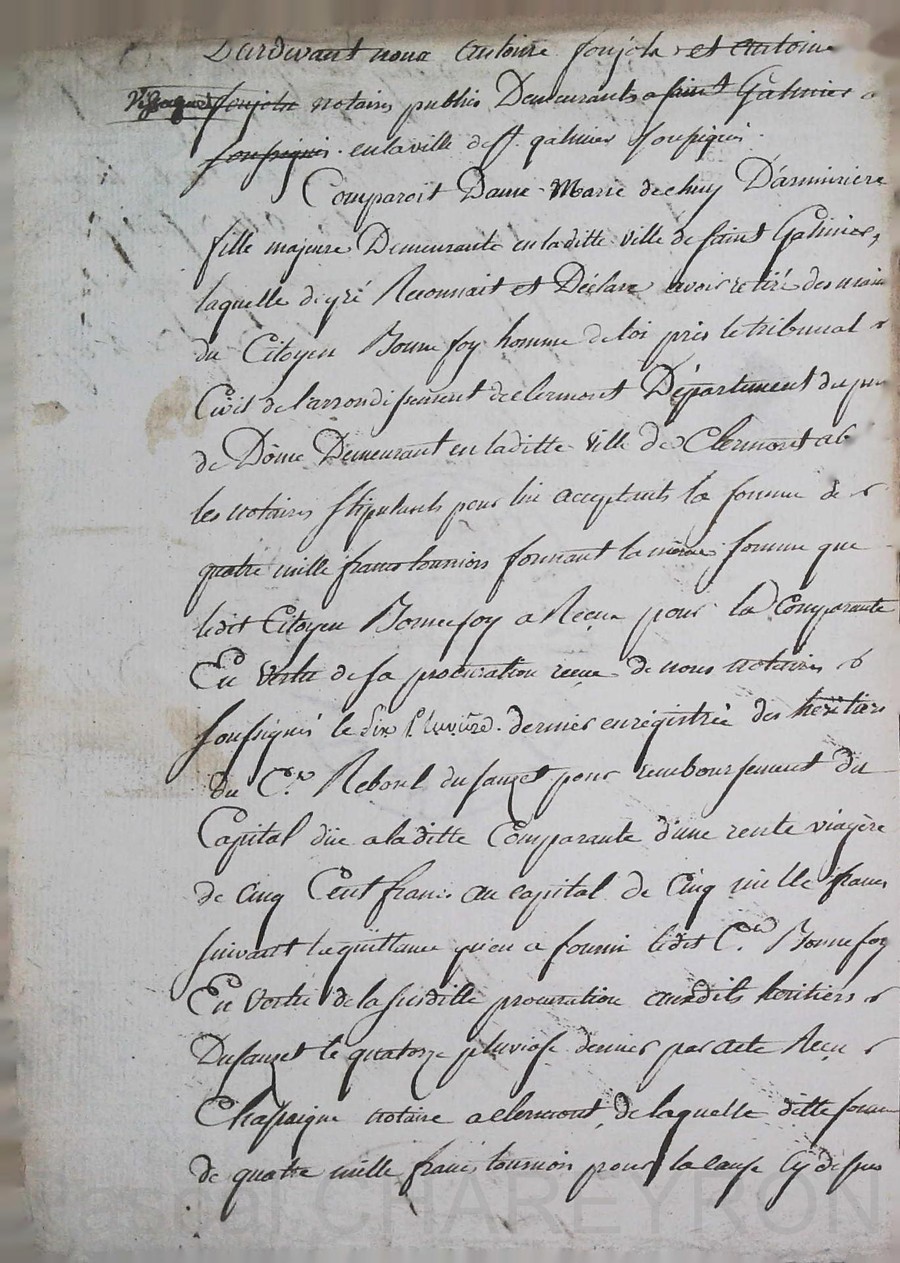 Pardevant nous Antoine Joujola et Antoine
Joujola notaires publics Demeurants a saint Galmier a
soussignés . en la ville de st. galmier soussignés .
Comparoit Dame Marie dechuy D'arminiere
fille majeure Demeurante en laditte ville de saint Galmier,
laquelle de gré Reconnait et Déclare avoir retiré des mains
du Citoyen Bonnefoy homme de loi près le tribunal
Civil de l'arrondissement de clermont Département du puy
de Dôme Demeurant en laditte ville de Clermont
les notaires stipulants pour lui acceptants la somme de
quatre mille francs tournois formant la même somme que
ledit Citoyen Bonnefoy a Reçue pour la Comparante
En Vertu de sa procuration reçue de nous notaires
soussignés le Six Pluviôse dernier enregistrée des héritiers
du C.en Reboul dusauzet pour remboursement du
Capital dûe a la ditte Comparante d'une rente viagère
de Cinq Cent francs au capital de Cinq mille francs
suivant la quittance qu'en a fourni ledit C.en Bonnefoy
En Vertu de la susditte procuration auxdits héritiers
Dusauzet le quatorze pluviose dernier par acte Reçu
Chassaigne notaire a clermont, de laquelle ditte somme
de quatre mille francs tournois pour la cause Cy dessus
Pascal CHAREYRON